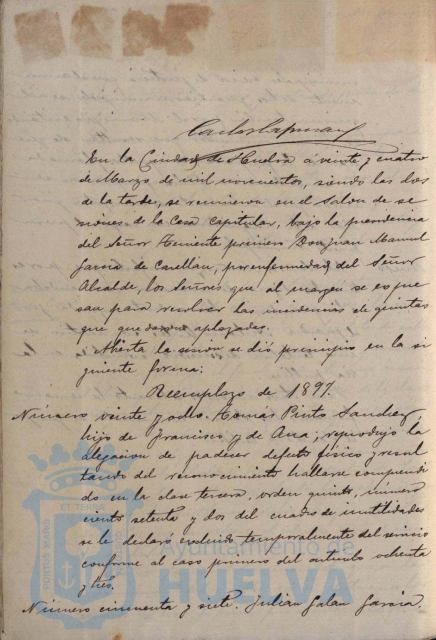 En la Ciudad de Huelva á veinte y cuatro
de Marzo de mil novecientos, siendo las dos
de la tarde, se reunieron en el Salon de se
siones de la Casa Capitular, bajo la presidencia
del Señor Teniente primero Don Juan Manuel
Garcia de , por enfermedad del Señor
Alcalde, los Señores que al margen se expre
san para resolver las incidencias de quintas
que quedaron aplazadas.
Abierta la sesion se dió principio en la si
guiente forma:
Reemplazo de 1897.
Número veinte y ocho. Tomás Pinto Sanchez,
hijo de Francisco y de Ana; reprodujo la
alegacion de padecer defecto físico y resul
tando del reconocimiento hallarse comprendi
do en la clase tercera, orden quinto, número
ciento setenta y dos del cuadro de inutilidades
se le declaró excluido temporalmente del servicio
conforme al caso primero del artículo ochenta
y tres.
Número cincuenta y siete. Julian Galan Garcia.
Ayuntamiento de
HUELVA
PORTUS MARIS
ET TERRA